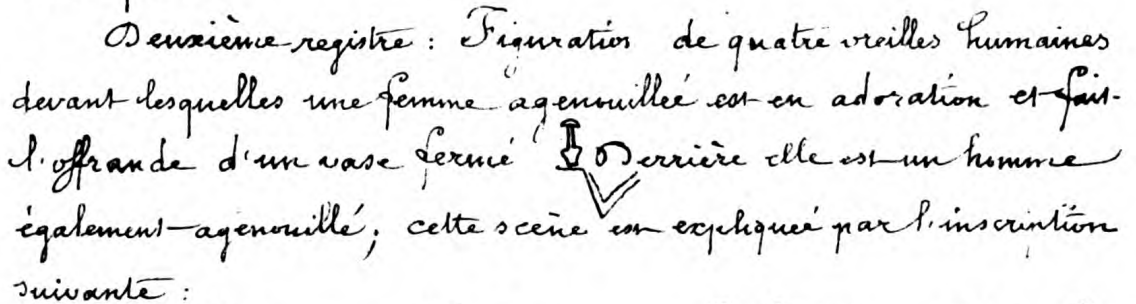 Deuxième registre : Figuration de quatre oreilles humaines
devant lesquelles une femme agenouillée est en adoration et fait
l'offrande d'un vase fermé Derrière elle est un homme
également agenouillé; cette scène est expliquée par l'inscription
suivante :